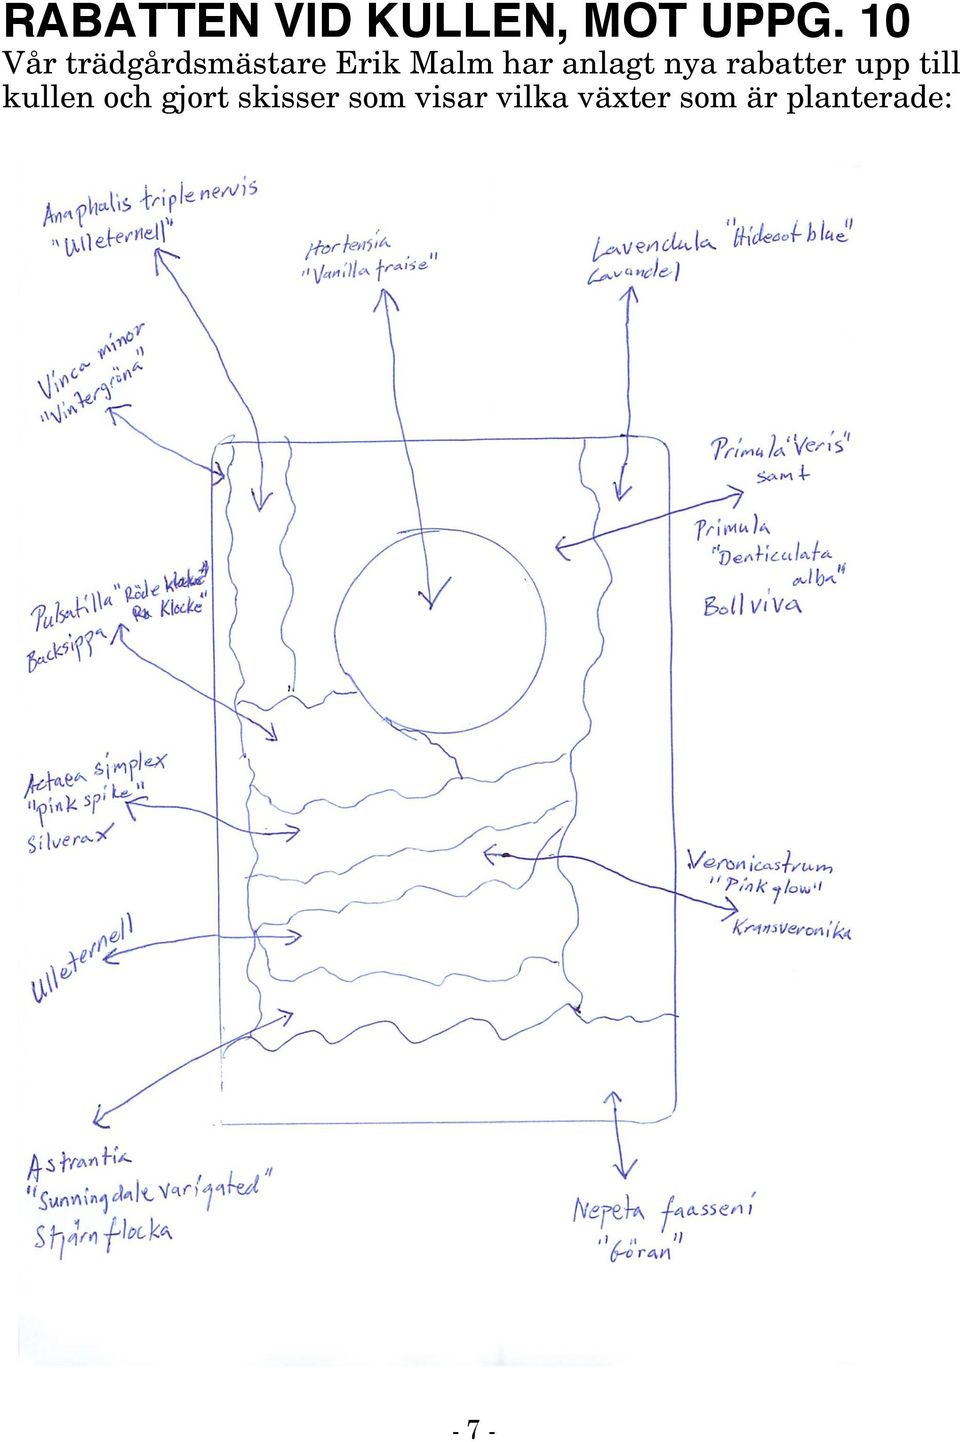 RABATTEN VID KULLEN, MOT UPPG. 10
Vår trädgårdsmästare Erik Malm har anlagt nya rabatter upp till
kullen och gjort skisser som visar vilka växter som är planterade:
Anaphalis triplenervis
"Ulleternell"
Hortensia
"Vanilla fraise"
Lavendula "Hidcoot blue"
Lavandel
Vinca minor
"Vintergröna"
Primula "Veris"
samt
Primula
"Denticulata
alba"
Bollviva
Pulsatilla "Röde
Klocke"
Backsippa
Actaea simplex
"pink spike"
Silverax
Veronicastrum
"Pink glow"
Kransveronika
Ulleternell
Astrantia
"Sunningdale varigated"
Stjärnflocka
Nepeta faasseni
"Göran"
- 7 -